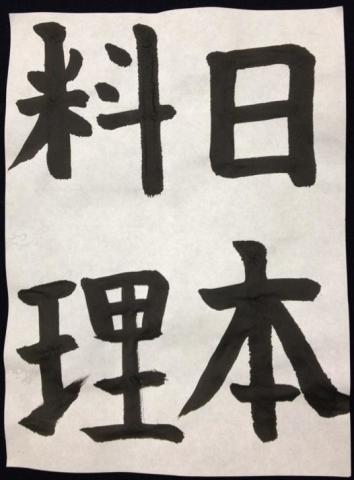 日本
料理